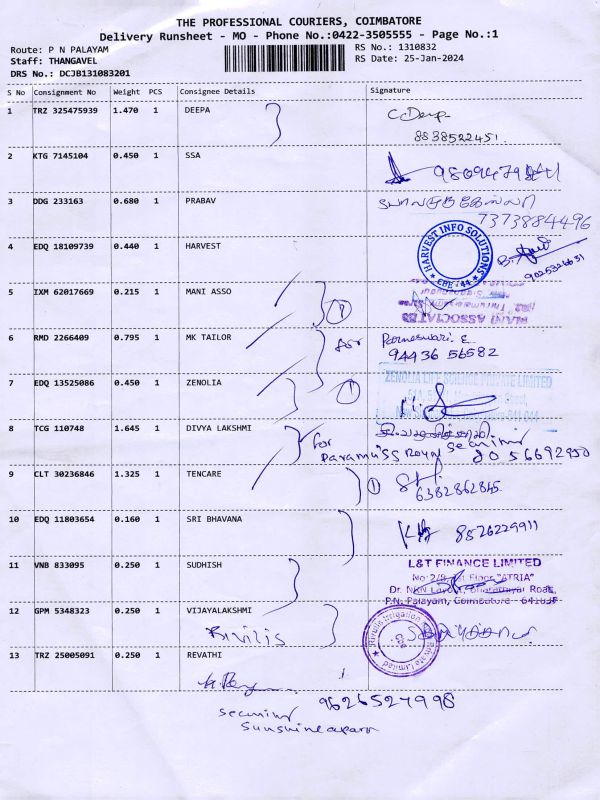 THE PROFESSIONAL COURIERS, COIMBATORE
Delivery Runsheet - MO - Phone No.:0422-3505555 - Page No.:1
Route: P N PALAYAM RS No.: 1310832
Staff: THANGAVEL RS Date: 25-Jan-2024
DRS No.: DCJB131083201
S No Consignment No Weight PCS Consignee Details Signature
1 TRZ 325475939 1.470 1 DEEPA
8838522451
2 KTG 7145104 0.450 1 SSA
3 DDG 233163 0.680 1 PRABAV
7373884496
4 EDQ 18109739 0.440 1 HARVEST
HARVEST INFO SOLUTIONS CBE-44
9025326631
5 IXM 62017669 0.215 1 MANI ASSO
MANI ASSOCIATES
6 RMD 2266409 0.795 1 MK TAILOR
Parmeswari. E
94436 56582
7 EDQ 13525086 0.450 1 ZENOLIA
ZENOLIA LIFE SCIENCE PRIVATE LIMITED
8 TCG 110748 1.645 1 DIVYA LAKSHMI
for
Royal
8056692950
9 CLT 30236846 1.325 1 TENCARE
6382862845
10 EDQ 11803654 0.160 1 SRI BHAVANA
8526229911
11 VNB 833095 0.250 1 SUDHISH
L&T FINANCE LIMITED
No:2/9, 1st Floor "ATRIA"
Dr. NRN Layout, Bharathiyar Road,
P.N. Palayam, Coimbatore - 641037
12 GPM 5348323 0.250 1 VIJAYALAKSHMI
Rivilis
Rivulis Irrigation Private Limited
13 TRZ 25005091 0.250 1 REVATHI
9626527998